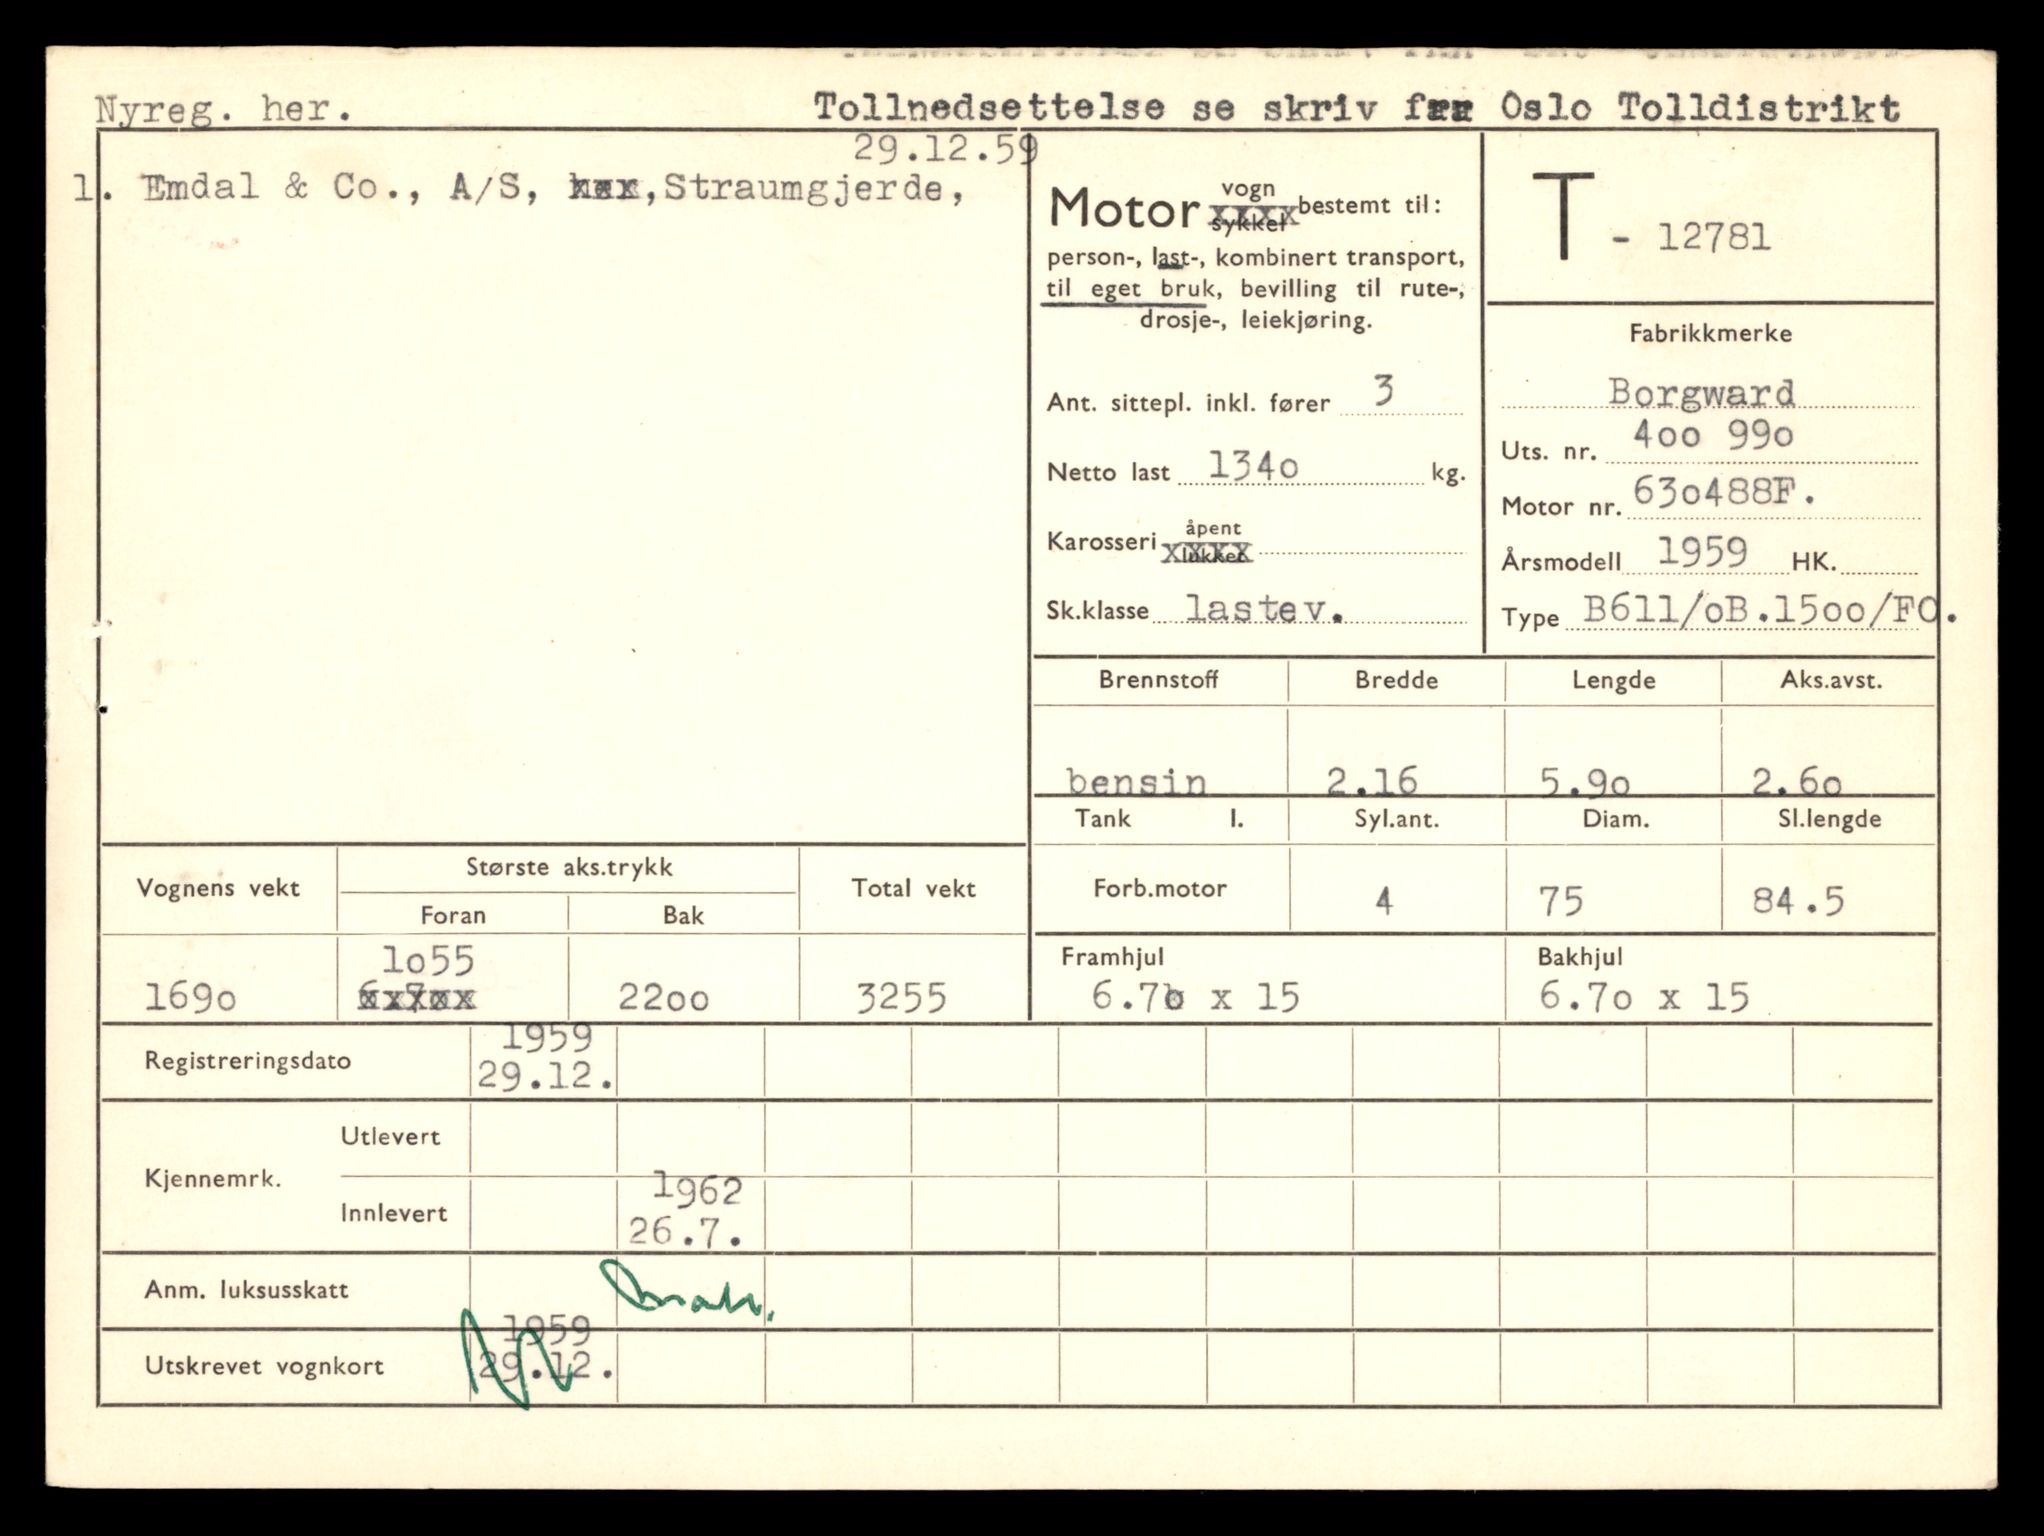 Nyreg. her.
Tollnedsettelse se skriv fra Oslo Tolldistrikt
29.12.59
1. Emdal & Co., A/S, Straumgjerde,
Motor vogn
sykkel bestemt til:
person-, last-, kombinert transport,
til eget bruk, bevilling til rute-,
drosje-, leiekjøring.
Ant. sittepl. inkl. fører 3
Netto last 1340 kg.
Karosseri åpent
lukket
Sk.klasse lastev.
T - 12781
Fabrikkmerke
Borgward
Uts. nr. 400 990
Motor nr. 630488F.
Årsmodell 1959 HK.
Type B611/oB.1500/FO.
Brennstoff Bredde Lengde Aks.avst.
bensin 2.16 5.90 2.60
Tank l. Syl.ant. Diam. Sl.lengde
Forb.motor 4 75 84.5
Framhjul Bakhjul
6.70 x 15 6.70 x 15
Vognens vekt Største aks.trykk Total vekt
Foran Bak
1055
1690 2200 3255
Registreringsdato 1959
29.12.
Kjennemrk. Utlevert
Innlevert 1962
26.7.
Anm. luksusskatt
Utskrevet vognkort 1959
29.12.